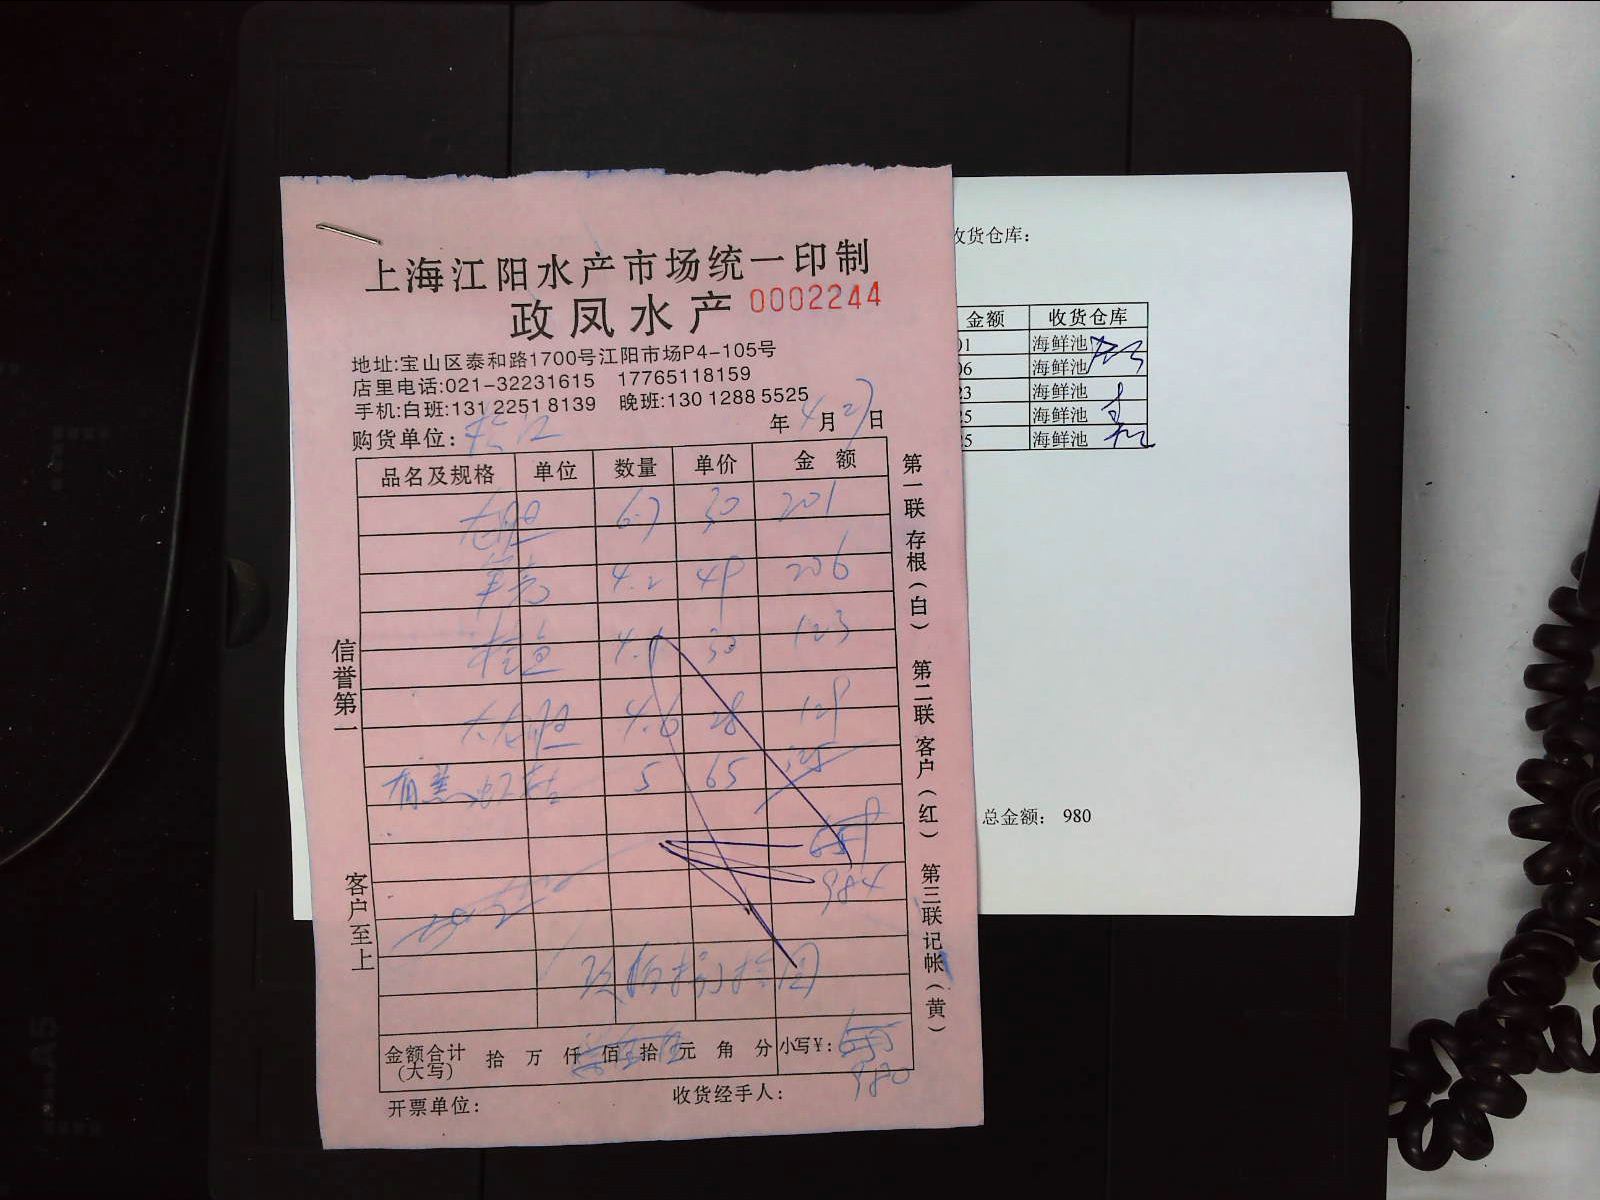 上海江阳水产市场统一印制
政凤水产 0002244
地址:宝山区泰和路1700号江阳市场P4-105号
店里电话:021-32231615 17765118159
手机:白班:131 2251 8139 晚班:130 1288 5525
购货单位: 年 4 月 27 日
品名及规格 单位 数量 单价 金 额
龙胆 6.7 30 201
4.2 49 206
4.1 30 123
大龙胆 4.6 28 129
5 65 325
984
金额合计(大写) 拾 万 仟 佰 拾 元 角 分 小写¥:
980
开票单位: 收货经手人:
信誉第一
客户至上
第一联 存根(白)
第二联 客户(红)
第三联 记帐(黄)
收货仓库:
金额 收货仓库
01 海鲜池
06 海鲜池
23 海鲜池
25 海鲜池
25 海鲜池
总金额: 980